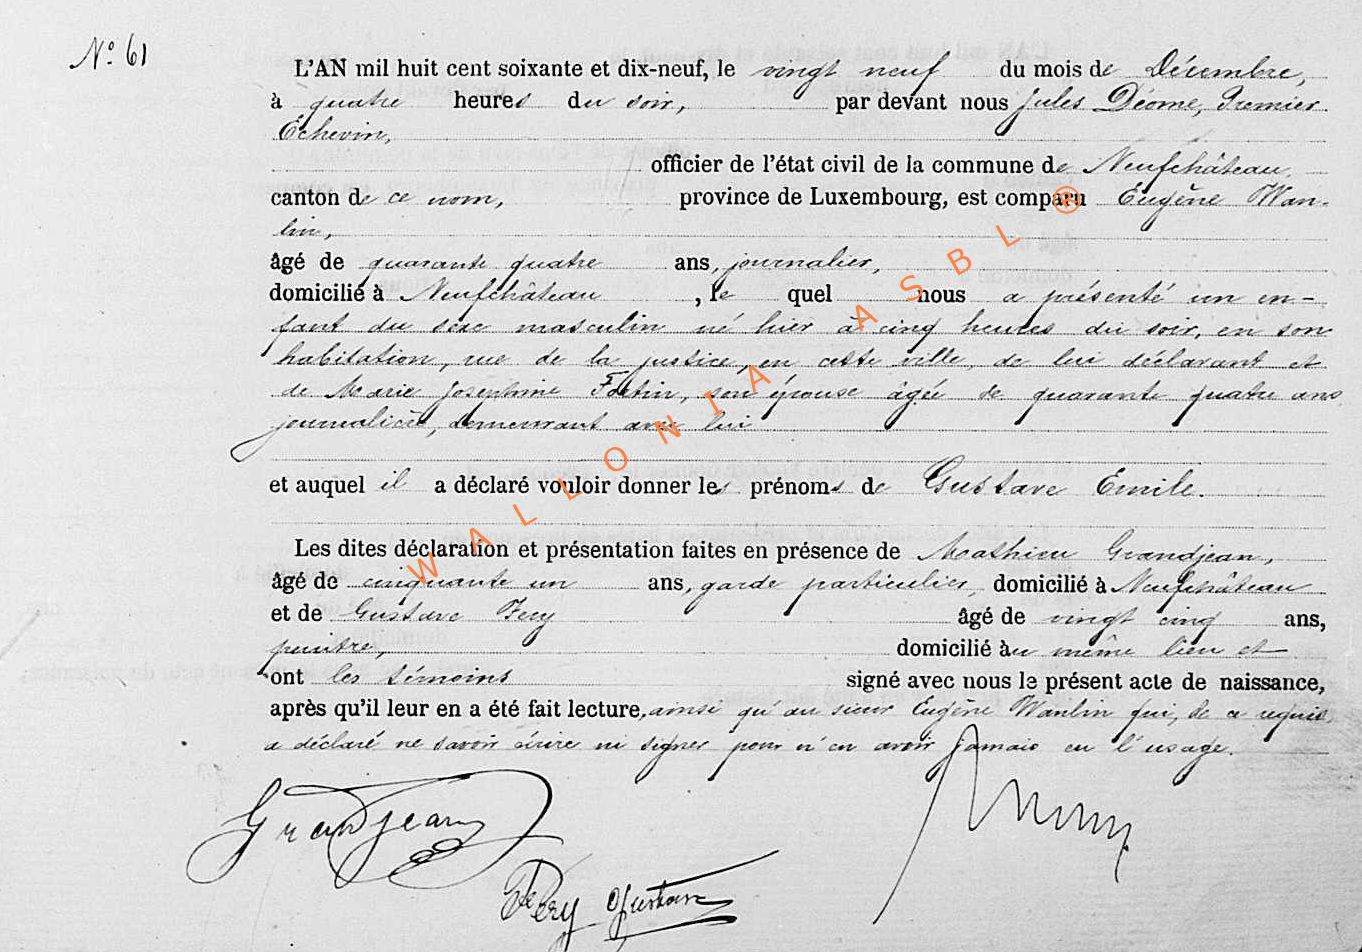 N° 61
L'AN mil huit cent soixante et dix-neuf, le vingt neuf du mois de Décembre,
à quatre heures du soir, par devant nous Jules Déome, Premier
Echevin,
officier de l'état civil de la commune de Neufchâteau,
canton de ce nom, province de Luxembourg, est comparu Eugène Wan-
lin,
âgé de quarante quatre ans, journalier,
domicilié à Neufchâteau , le quel nous a présenté un en-
fant du sexe masculin né hier à cinq heures du soir, en son
habitation, rue de la justice, en cette ville, de lui déclarant et
de Marie Josephine Fortin, son épouse âgée de quarante quatre ans
journalière, demeurant avec lui
et auquel il a déclaré vouloir donner les prénoms de Gustave Emile.
Les dites déclaration et présentation faites en présence de Mathieu Grandjean,
âgé de cinquante un ans, garde particulier, domicilié à Neufchâteau
et de Gustave Fery âgé de vingt cinq ans,
peintre, domicilié au même lieu et
ont les témoins signé avec nous le présent acte de naissance,
après qu'il leur en a été fait lecture, ainsi qu'au sieur Eugène Wanlin qui, de ce requis
a déclaré ne savoir écrire ni signer pour n'en avoir jamais eu l'usage.
Grandjean
Féry Gustave
WALLONIA ASBL ®